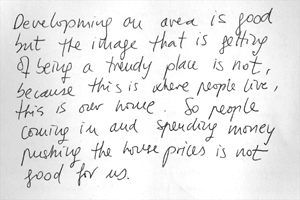 Developming an area is good
but the image that is getting
of being a trendy place is not,
because this is where people live,
this is our home. So people
coming in and spending money
pushing the house prices is not
good for us.